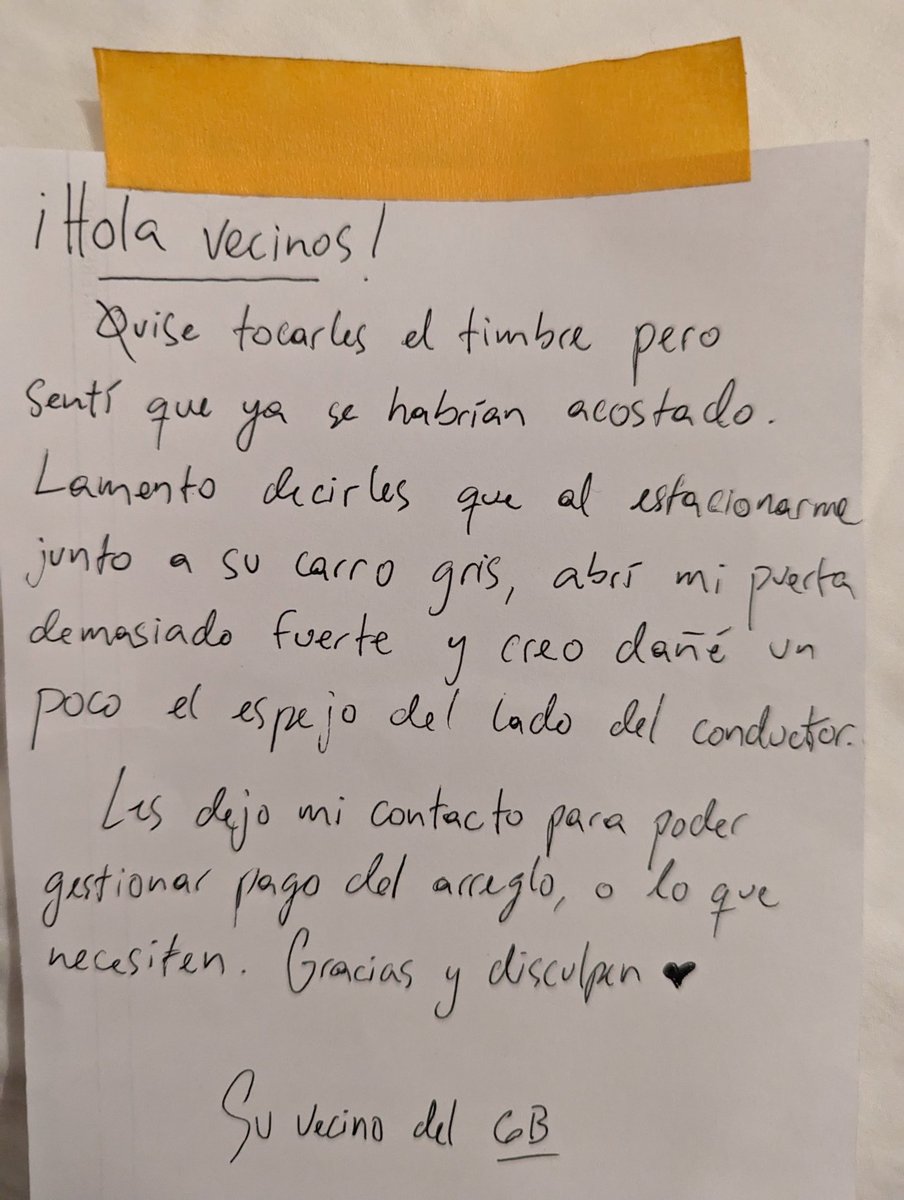 ¡Hola vecinos!
Quise tocarles el timbre pero
sentí que ya se habrían acostado.
Lamento decirles que al estacionarme
junto a su carro gris, abrí mi puerta
demasiado fuerte y creo dañé un
poco el espejo del lado del conductor.
Les dejo mi contacto para poder
gestionar pago del arreglo, o lo que
necesiten. Gracias y disculpen ♥
Su vecino del 6B